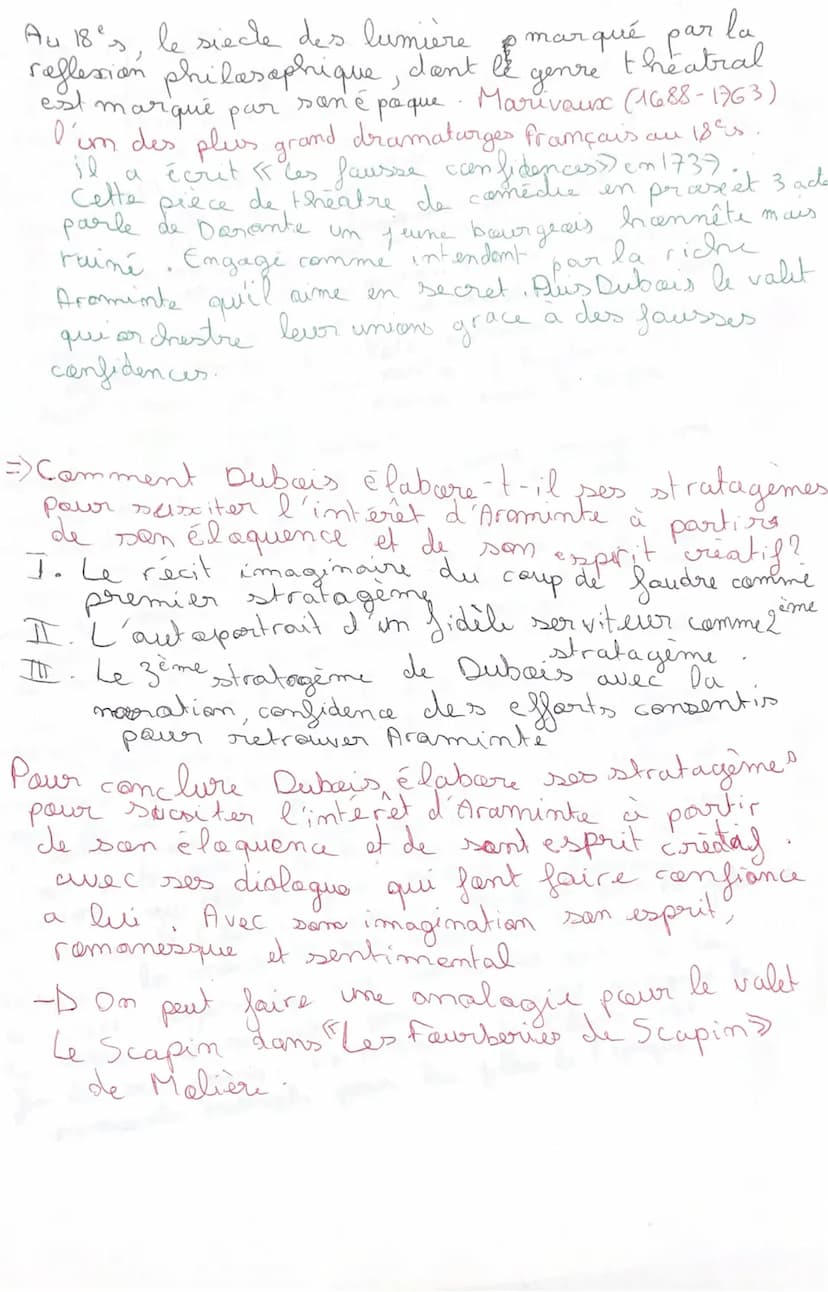 Au 18e s, le siecle des lumière marqué par la
reflexion philosophique, dont le genre théatral
est marqué par son époque. Marivaux (1688-1763)
l'un des plus grand dramaturges français au 18e s.
il a écrit « Les fausse confidences » en 1737.
Cette pièce de théâtre de comédie en prose et 3 acte
parle de Dorante un jeune bourgeois honnête mais
ruiné. Engagé comme intendant par la riche
Araminte qu'il aime en secret. Puis Dubois le valet
qui orchestre leur unions grace à des fausses
confidences.
=> Comment Dubois élabore-t-il ses stratagèmes
pour susciter l'intérêt d'Araminte à partirs
de son éloquence et de son esprit créatif?
I. Le récit imaginaire du coup de foudre comme
premier stratagème
II. L'autoportrait d'un fidèle serviteur comme 2ème
stratagème.
III. Le 3ème stratagème de Dubois avec la
narration, confidence des efforts consentis
pour retrouver Araminte
Pour conclure Dubois, élabore ses stratagèmes
pour susciter l'intérêt d'Araminte à partir
de son éloquence et de sont esprit créatif.
avec ses dialogue qui font faire confiance
a lui. Avec son imagination son esprit,
romanesque et sentimental
-> On peut faire une analogie pour le valet
Le Scapin dans "Les Fourberies de Scapin»
de Molière.